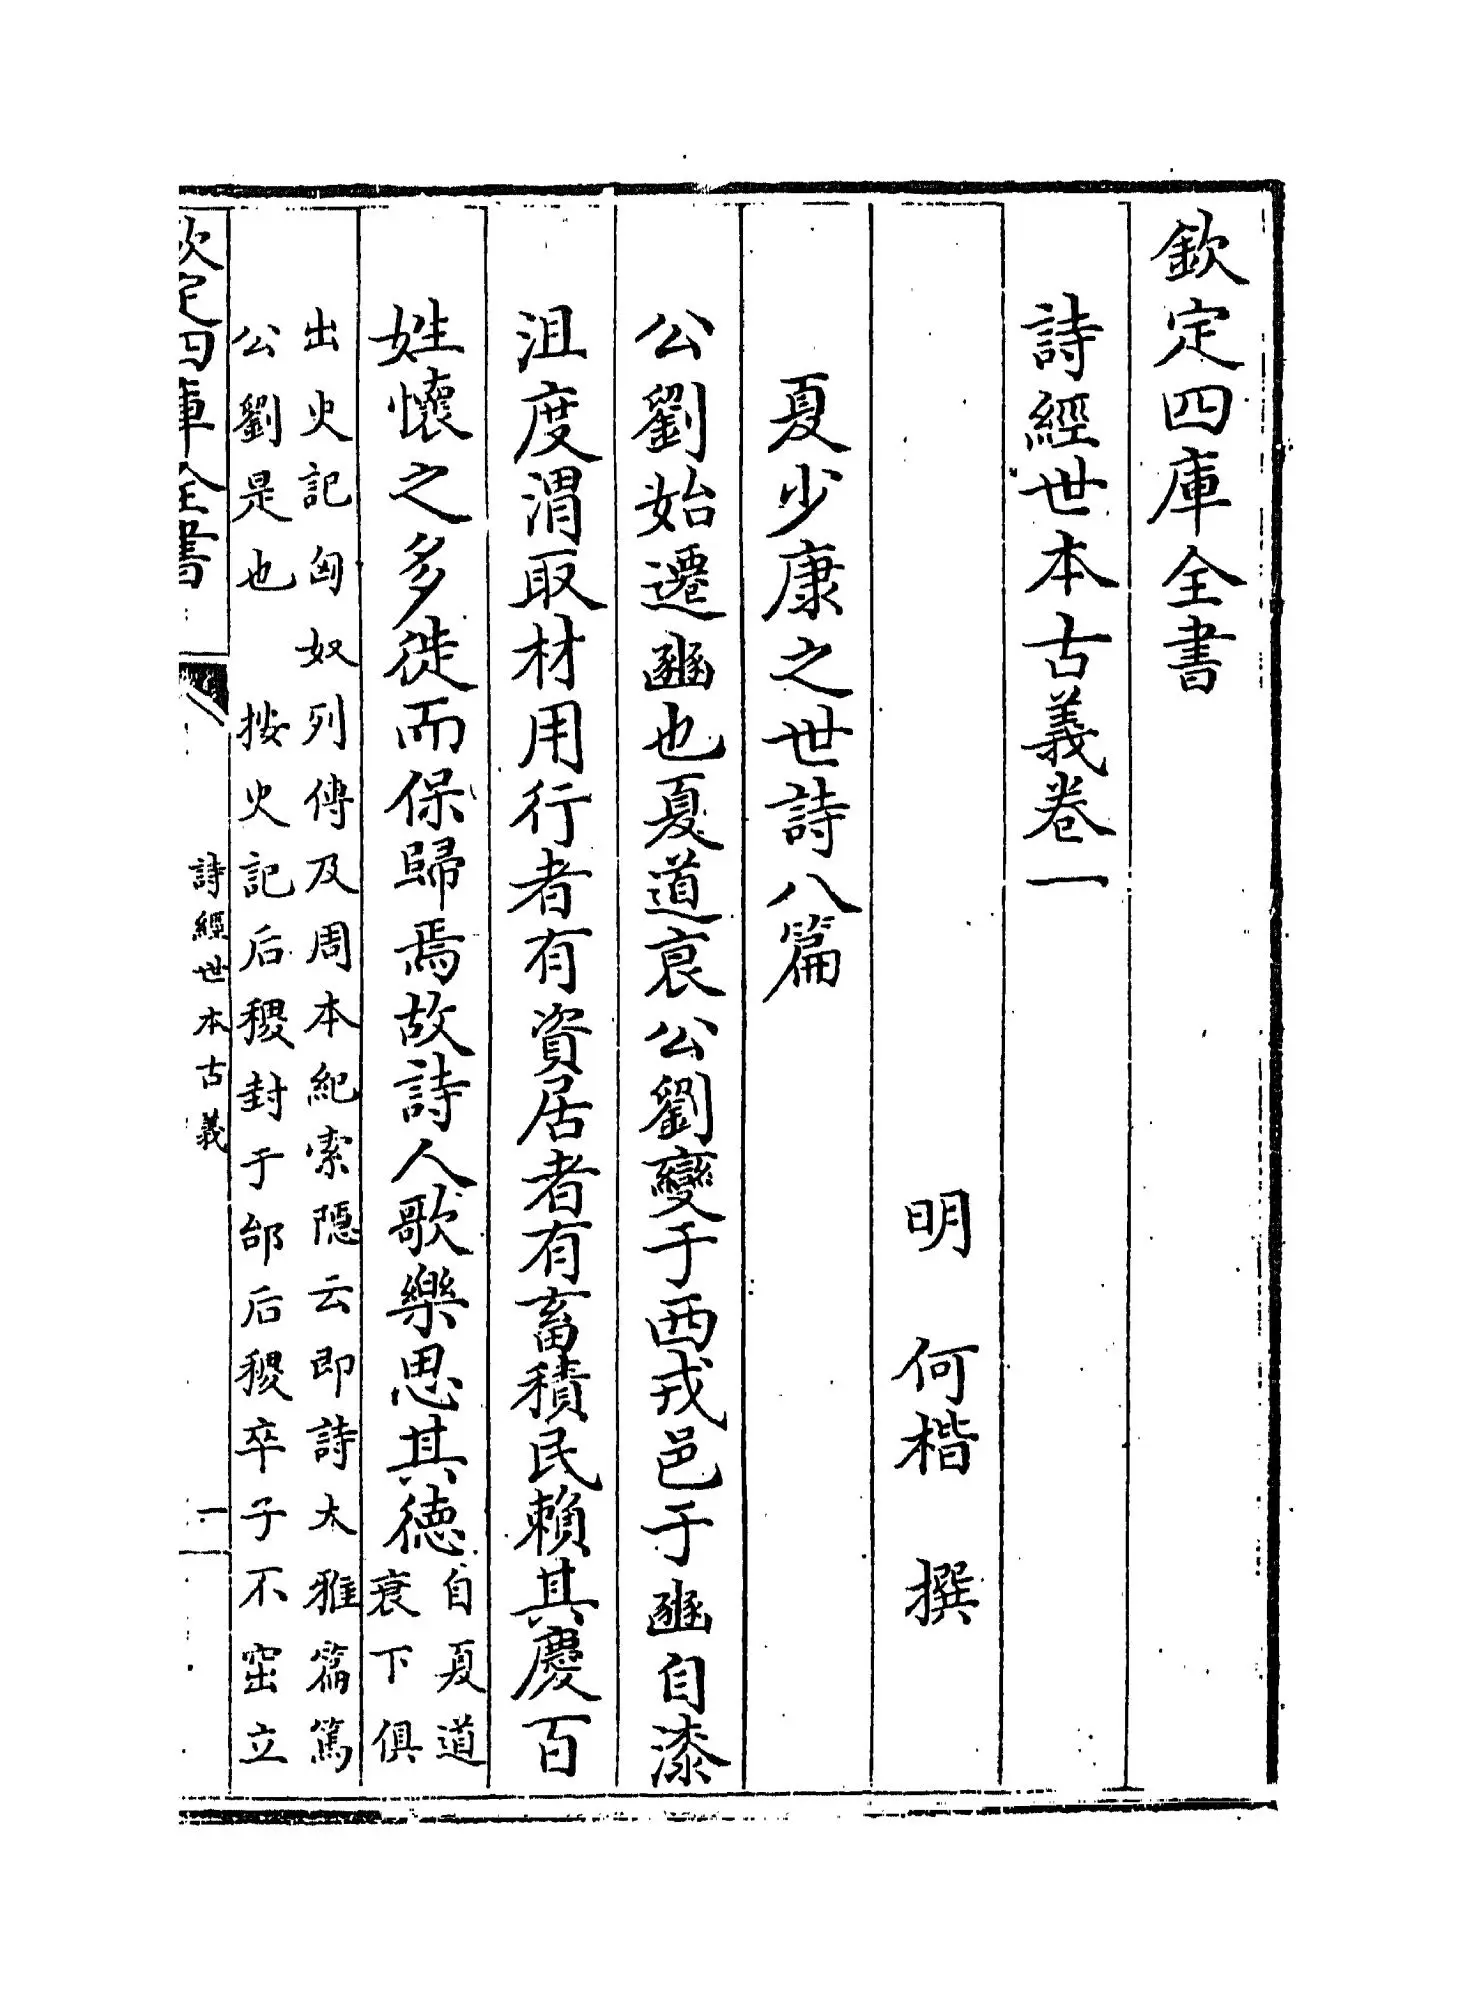 欽定四庫全書
詩經世本古義卷一
明 何楷 撰
夏少康之世詩八篇
公劉始遷豳也夏道衰公劉變于西戎邑于豳自漆
沮度渭取材用行者有資居者有畜積民賴其慶百
姓懷之多徙而保歸焉故詩人歌樂思其德
自夏道
衰下俱
出史記匈奴列傳及周本紀索隱云即詩大雅篇篤
公劉是也 按史記后稷封于邰后稷卒子不窋立
欽定四庫全書
詩經世本古義
一